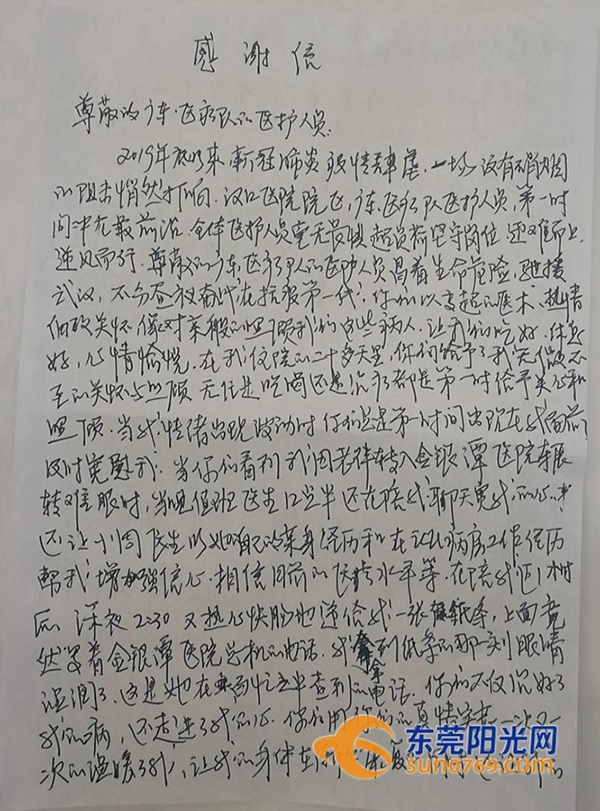 感谢信
尊敬的广东医疗队的医护人员:
2019年底以来新冠肺炎疫情肆虐,一场没有硝烟
的阻击悄然打响。汉口医院院区,广东医疗队医护人员,第一时
间冲在最前沿。全体医护人员毫无畏惧超负荷坚守岗位,迎难而上,
逆风而行。尊敬的广东医疗队的医护人员冒着生命危险,驰援
武汉,不分昼夜奋战在抗疫第一线。你们以高超的医术、热情
细致关怀像对亲人般的照顾我们这些病人。让我们吃好、休息
好,心情愉悦。在我住院的二十多天里,你们给予了我无微不
至的关怀与照顾 无论是吃喝还是治疗都是第一时给予关心和
照顾。当我情绪出现波动时你们总是第一时间出现在我面前
及时宽慰我。当你们看到我因老伴转入金银潭医院辗
转难眠时,当晚值班医生12点半还在陪我聊天宽我的心
还让小周医生以她自己的亲身经历和在 病房工作经历
帮我增加强信心,相信目前的医疗水平等。在陪我近1小时
后 深夜2:30又热心快肠地递给我一张纸条,上面竟
然写着金银潭医院总机的电话,我拿到纸条的那一刻眼睛
湿润了。这是她在 查到的电话。你们不仅治好了
我的病,还走进了我的心。你们用你们的真情 一次又一
次的温暖了我,让我的身体
东莞阳光网
sun0769.com